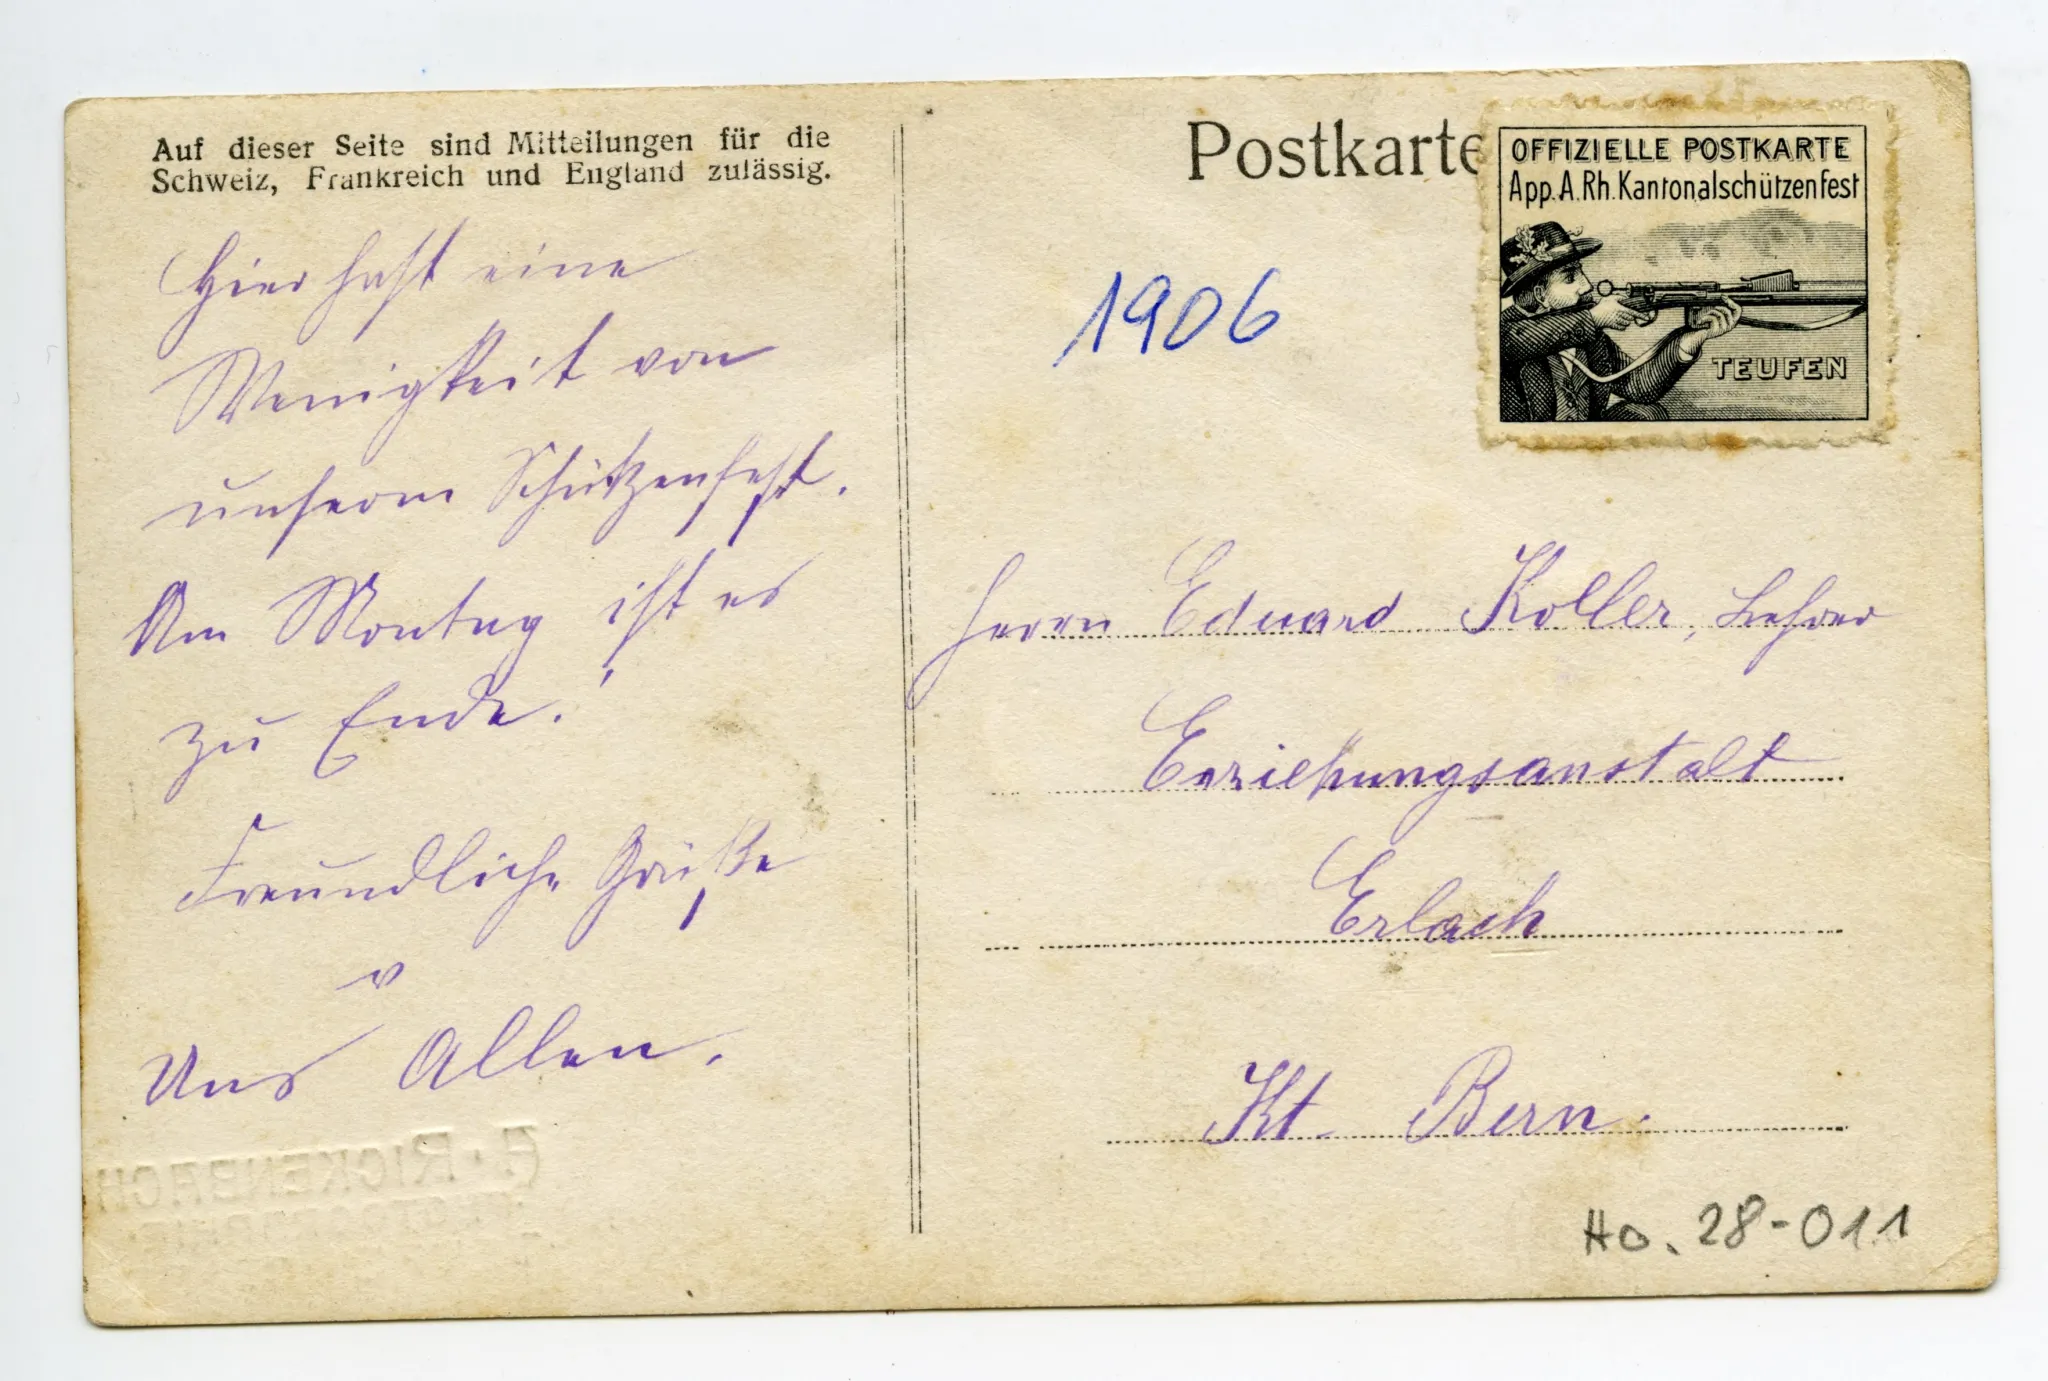 Auf dieser Seite sind Mitteilungen für die
Schweiz, Frankreich und England zulässig.
Hier hast eine
Wenigkeit von
unserm Schützenfest.
Am Montag ist es
zu Ende!
Freundliche Grüße
v
Uns Allen.
A. RICKENBACH
Postkarte
OFFIZIELLE POSTKARTE
App. A. Rh. Kantonalschützenfest
TEUFEN
1906
Herrn Eduard Koller, Lehrer
Erziehungsanstalt
Erlach
Kt. Bern.
Ho. 28-011